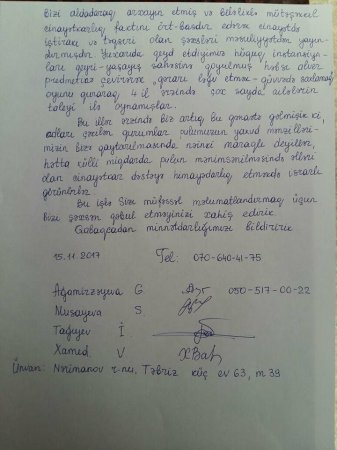 bizi aldadaraq arxayın etmiş və beləliklə mütəşəkkil
cinayətkarlıq faktını ört-basdır edərək cinayətdə
iştirakı və təqsiri olan şəxsləri məsuliyyətdən yayın-
dırmışdır. Yuxarıda qeyd etdiyimiz hüquq instansiya-
ları qeyri-yaşayış sahəsinə qoyulmuş həbsi alver
predmetinə çevirərək, qərarı ləğv etmək - qüvvədə saxlamaq
oyunu quraraq 4 il ərzində çox sayda ailələrin
taleyi ilə oynamışlar.
Bu illər ərzində biz artıq bu qənaətə gəlmişik ki,
adları çəkilən qurumlar pulumuzun yaxud mənzilləri-
mizin bizə qaytarılmasında nəinki maraqlı deyillər,
hətta külli miqdarda pulun mənimsənilməsində əlləri
olan cinayətkar dəstəyə himayədarlıq etməkdə israrlı
görünürlər.
Bu işlə Sizi müfəssəl məlumatlandırmaq üçün
bizi şəxsən qəbul etməyinizi xahiş edirik.
Qabaqcadan minnətdarlığımızı bildiririk
15.11.2017 Tel: 070-640-41-75
Ağamirzəyeva G. 050-517-00-22
Musayeva S.
Tağıyev İ.
Xamed V XBaf
Ünvan: Nərimanov r-nu, Təbriz küç ev 63, m 39